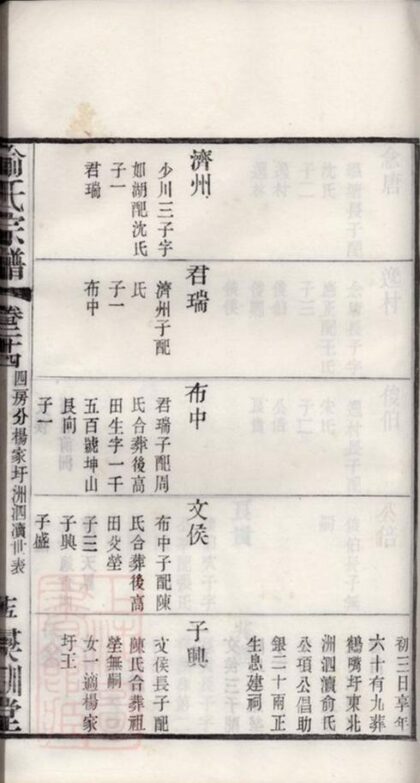 初三日享年
六十有九葬
鶴嘴圩東北
洲泗瀆俞氏
公項公倡助
銀二十兩正
生息建祠
濟州
少川三子字
如湖配沈氏
子一
君瑞
君瑞
濟州子配
氏
子一
布中
布中
君瑞子配周
氏合葬後高
田生字一千
五百號坤山
艮向
子一
文侯
布中子配陳
氏合葬後高
田父塋
子三
子興
子盛
子興
文侯長子配
陳氏合葬祖
塋無嗣
女一適楊家
圩王
俞氏宗譜
卷二十四
四房分楊家圩洲泗瀆世表
堂